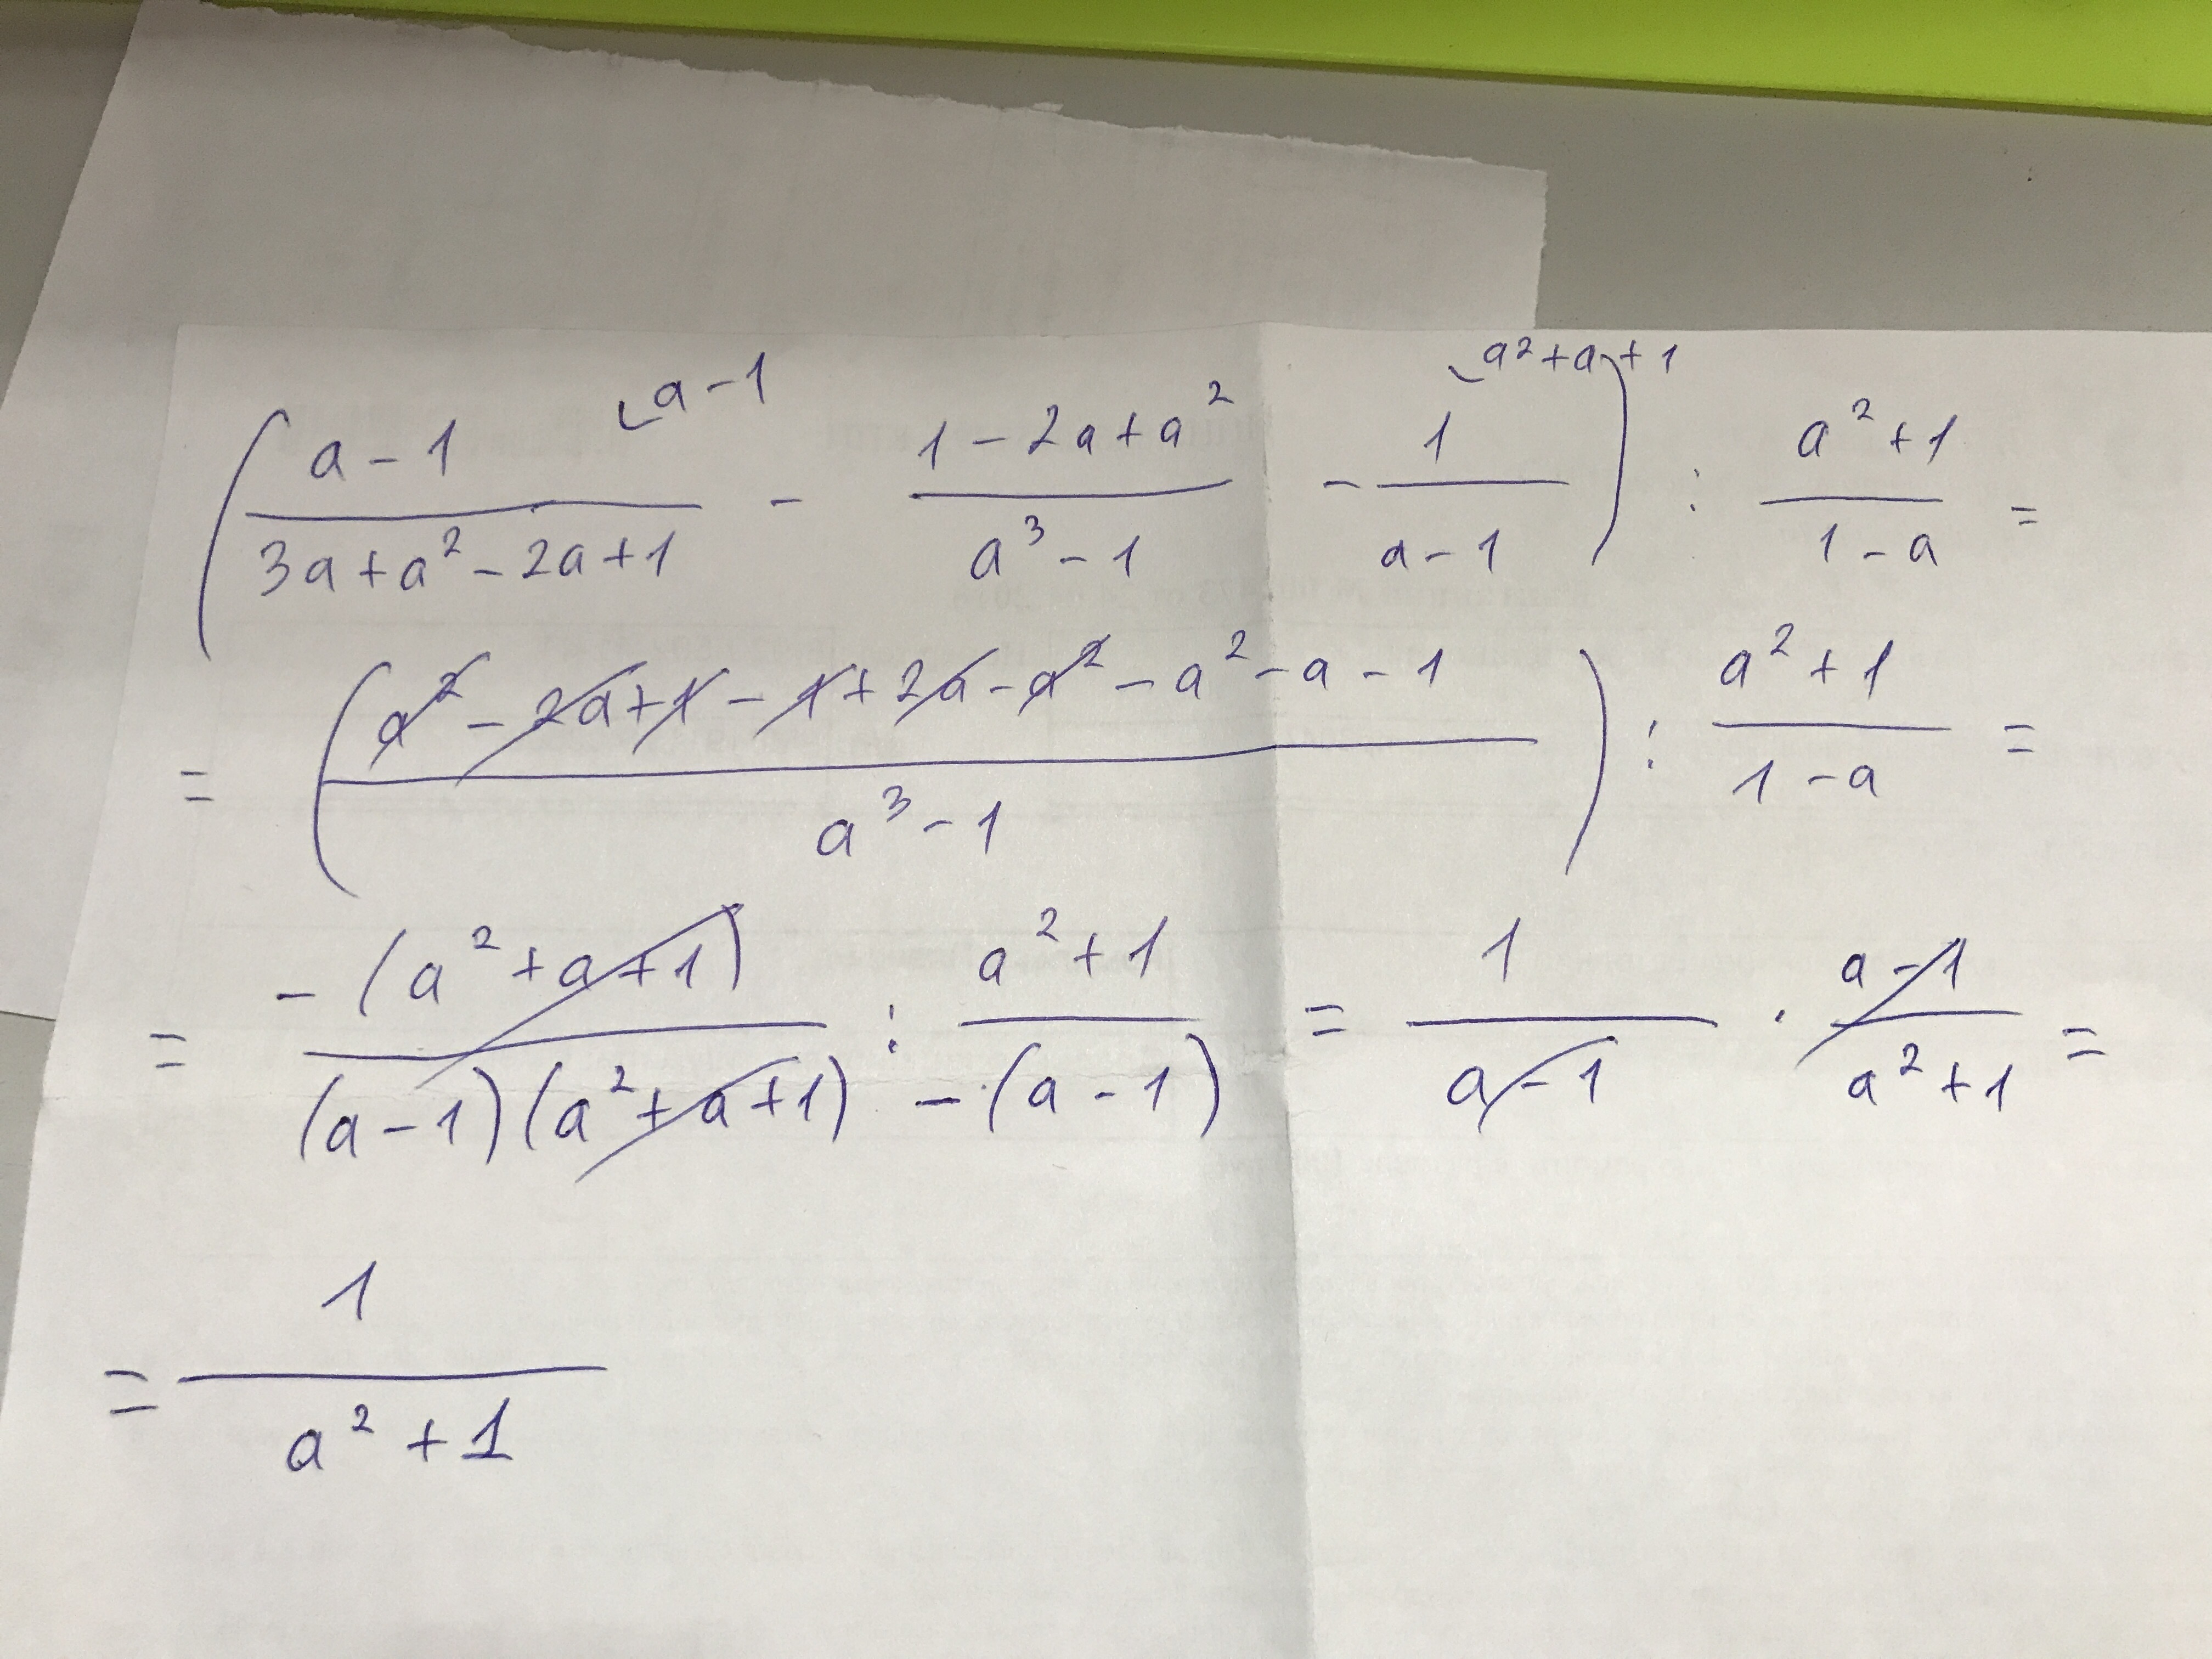 ( (a-1)/(3a+a²-2a+1) ⌣a-1 - (1-2a+a²)/(a³-1) - 1/(a-1) ⌣a²+a+1 ) : (a²+1)/(1-a) =
= ( (a²-2a+1-1+2a-a²-a²-a-1)/(a³-1) ) : (a²+1)/(1-a) =
= -(a²+a+1)/((a-1)(a²+a+1)) : (a²+1)/(-(a-1)) = 1/(a-1) · (a-1)/(a²+1) =
= 1/(a²+1)